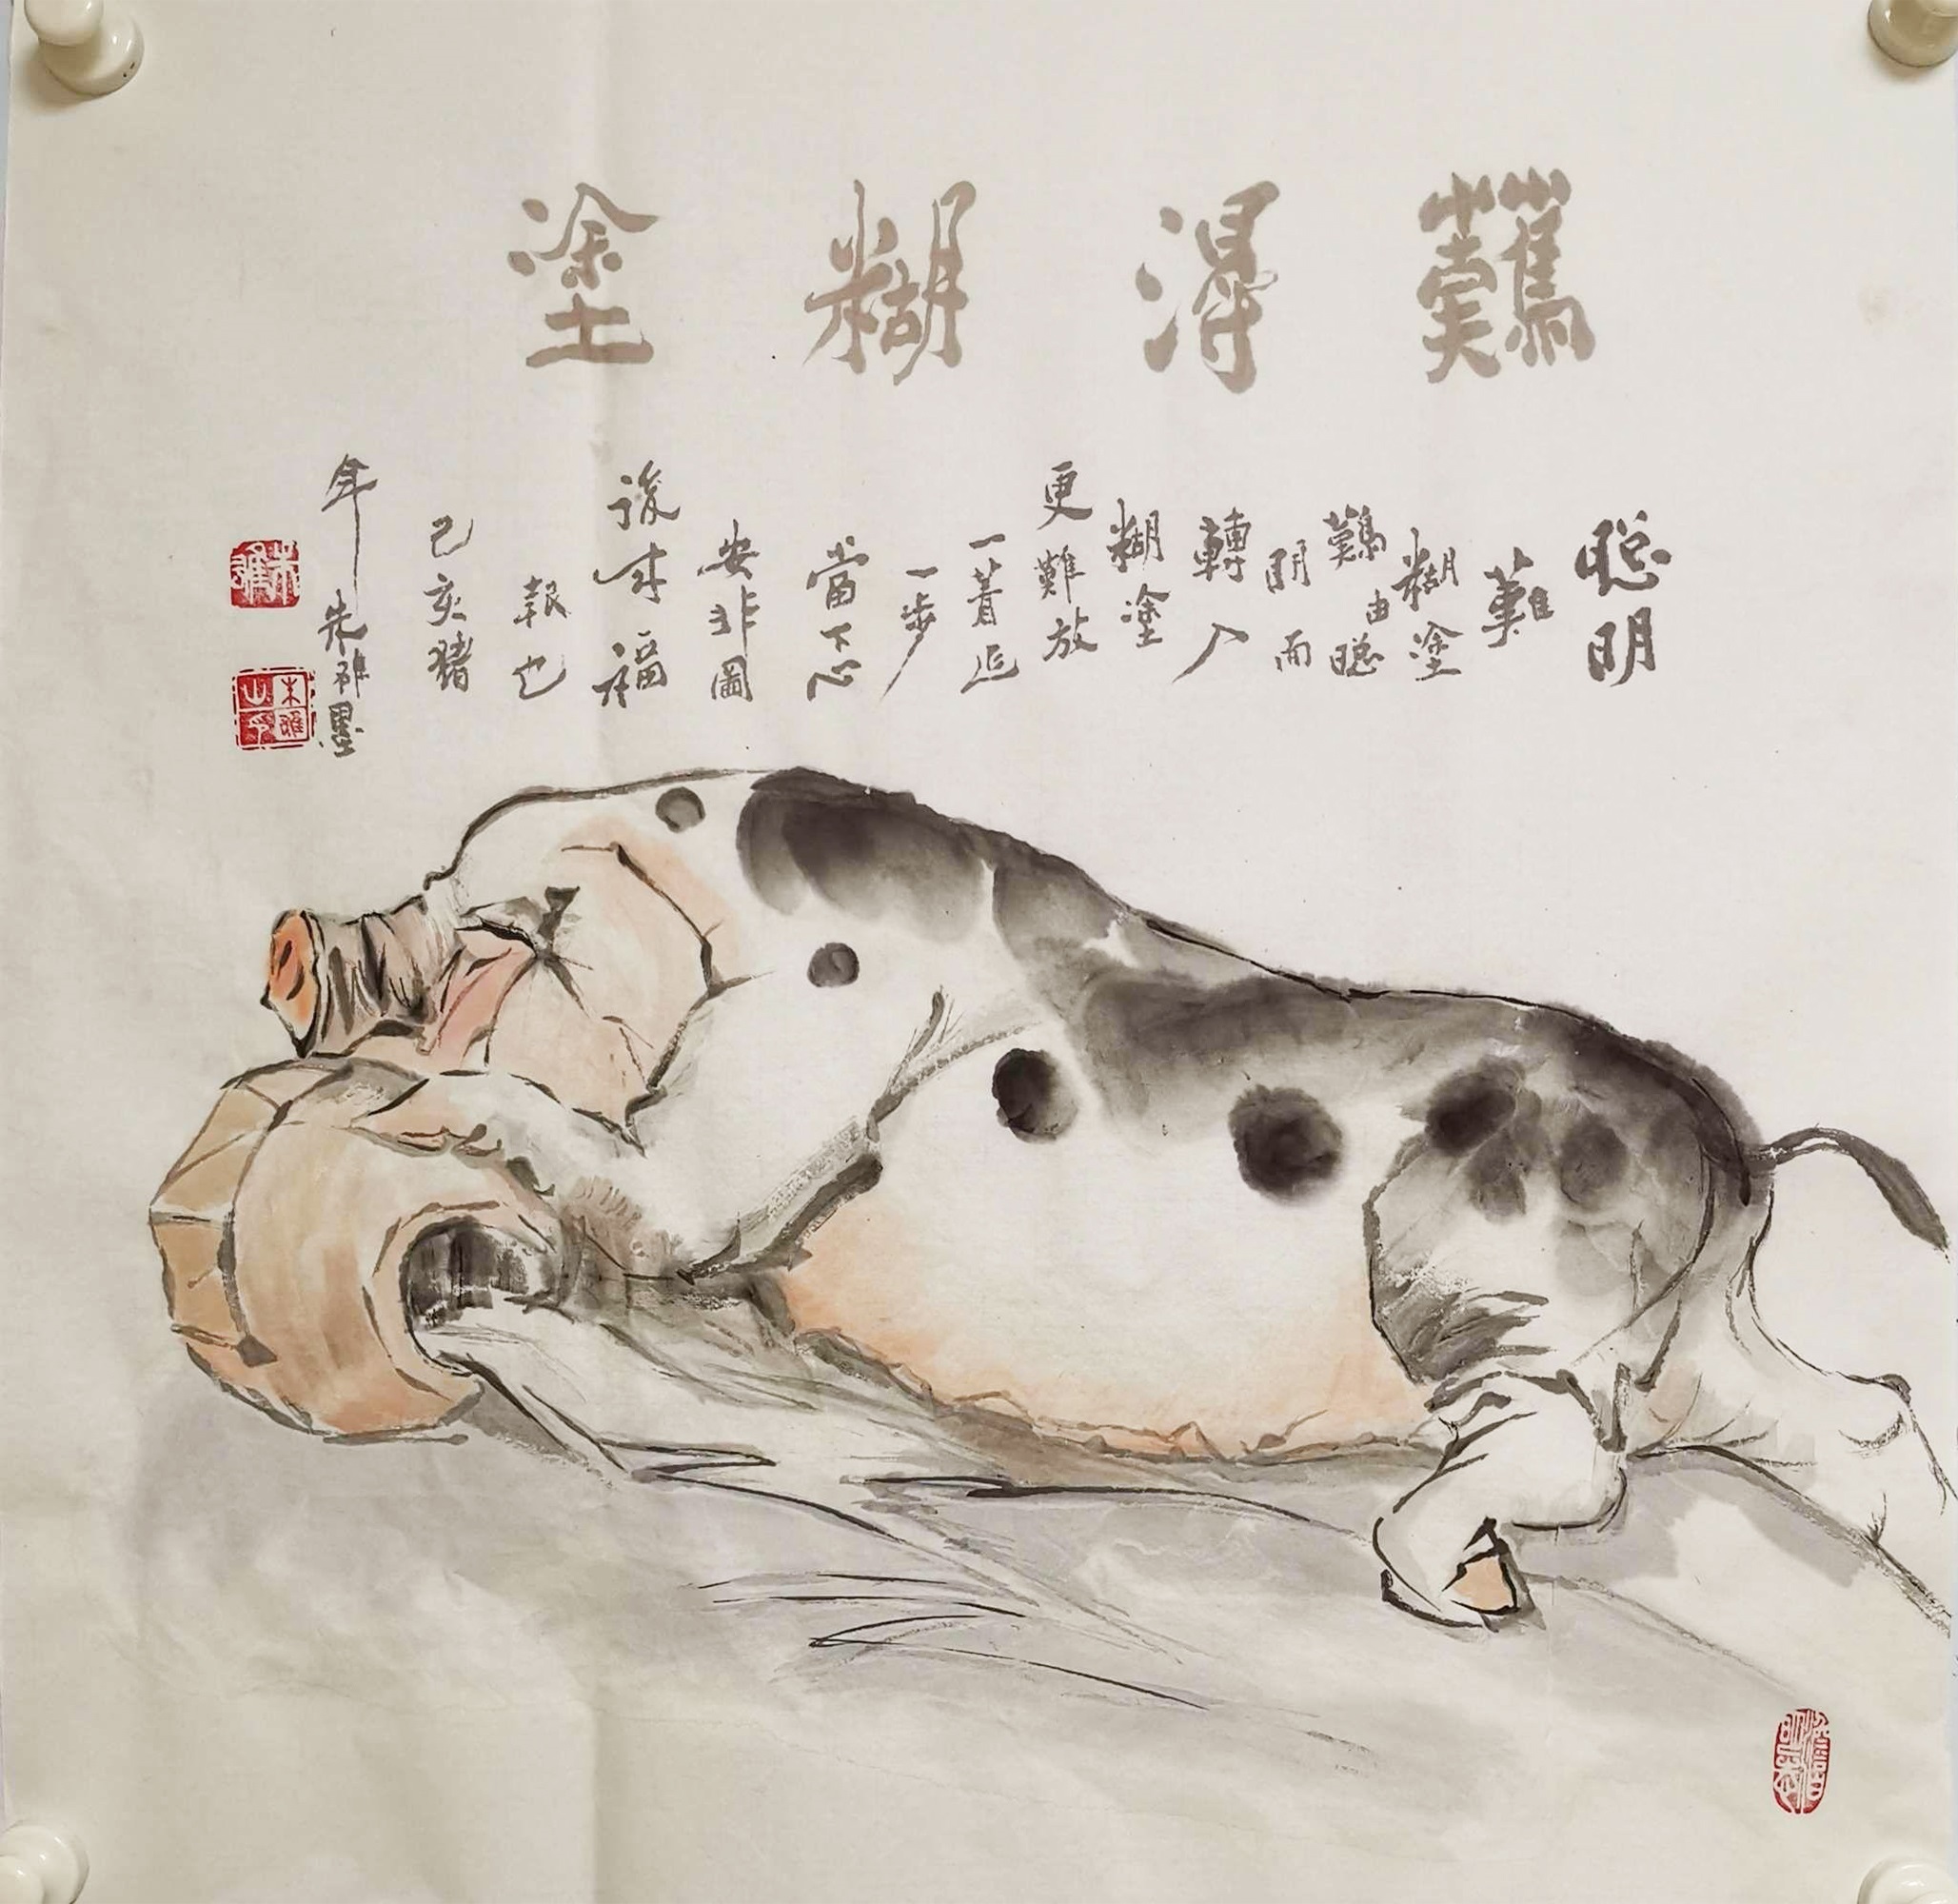 難得糊塗
聰明
難
糊塗
難由聰
明而
轉入
糊塗
更難放
一著退
一步
當下心
安非圖
後來福
報也
己亥豬
年朱雅墨